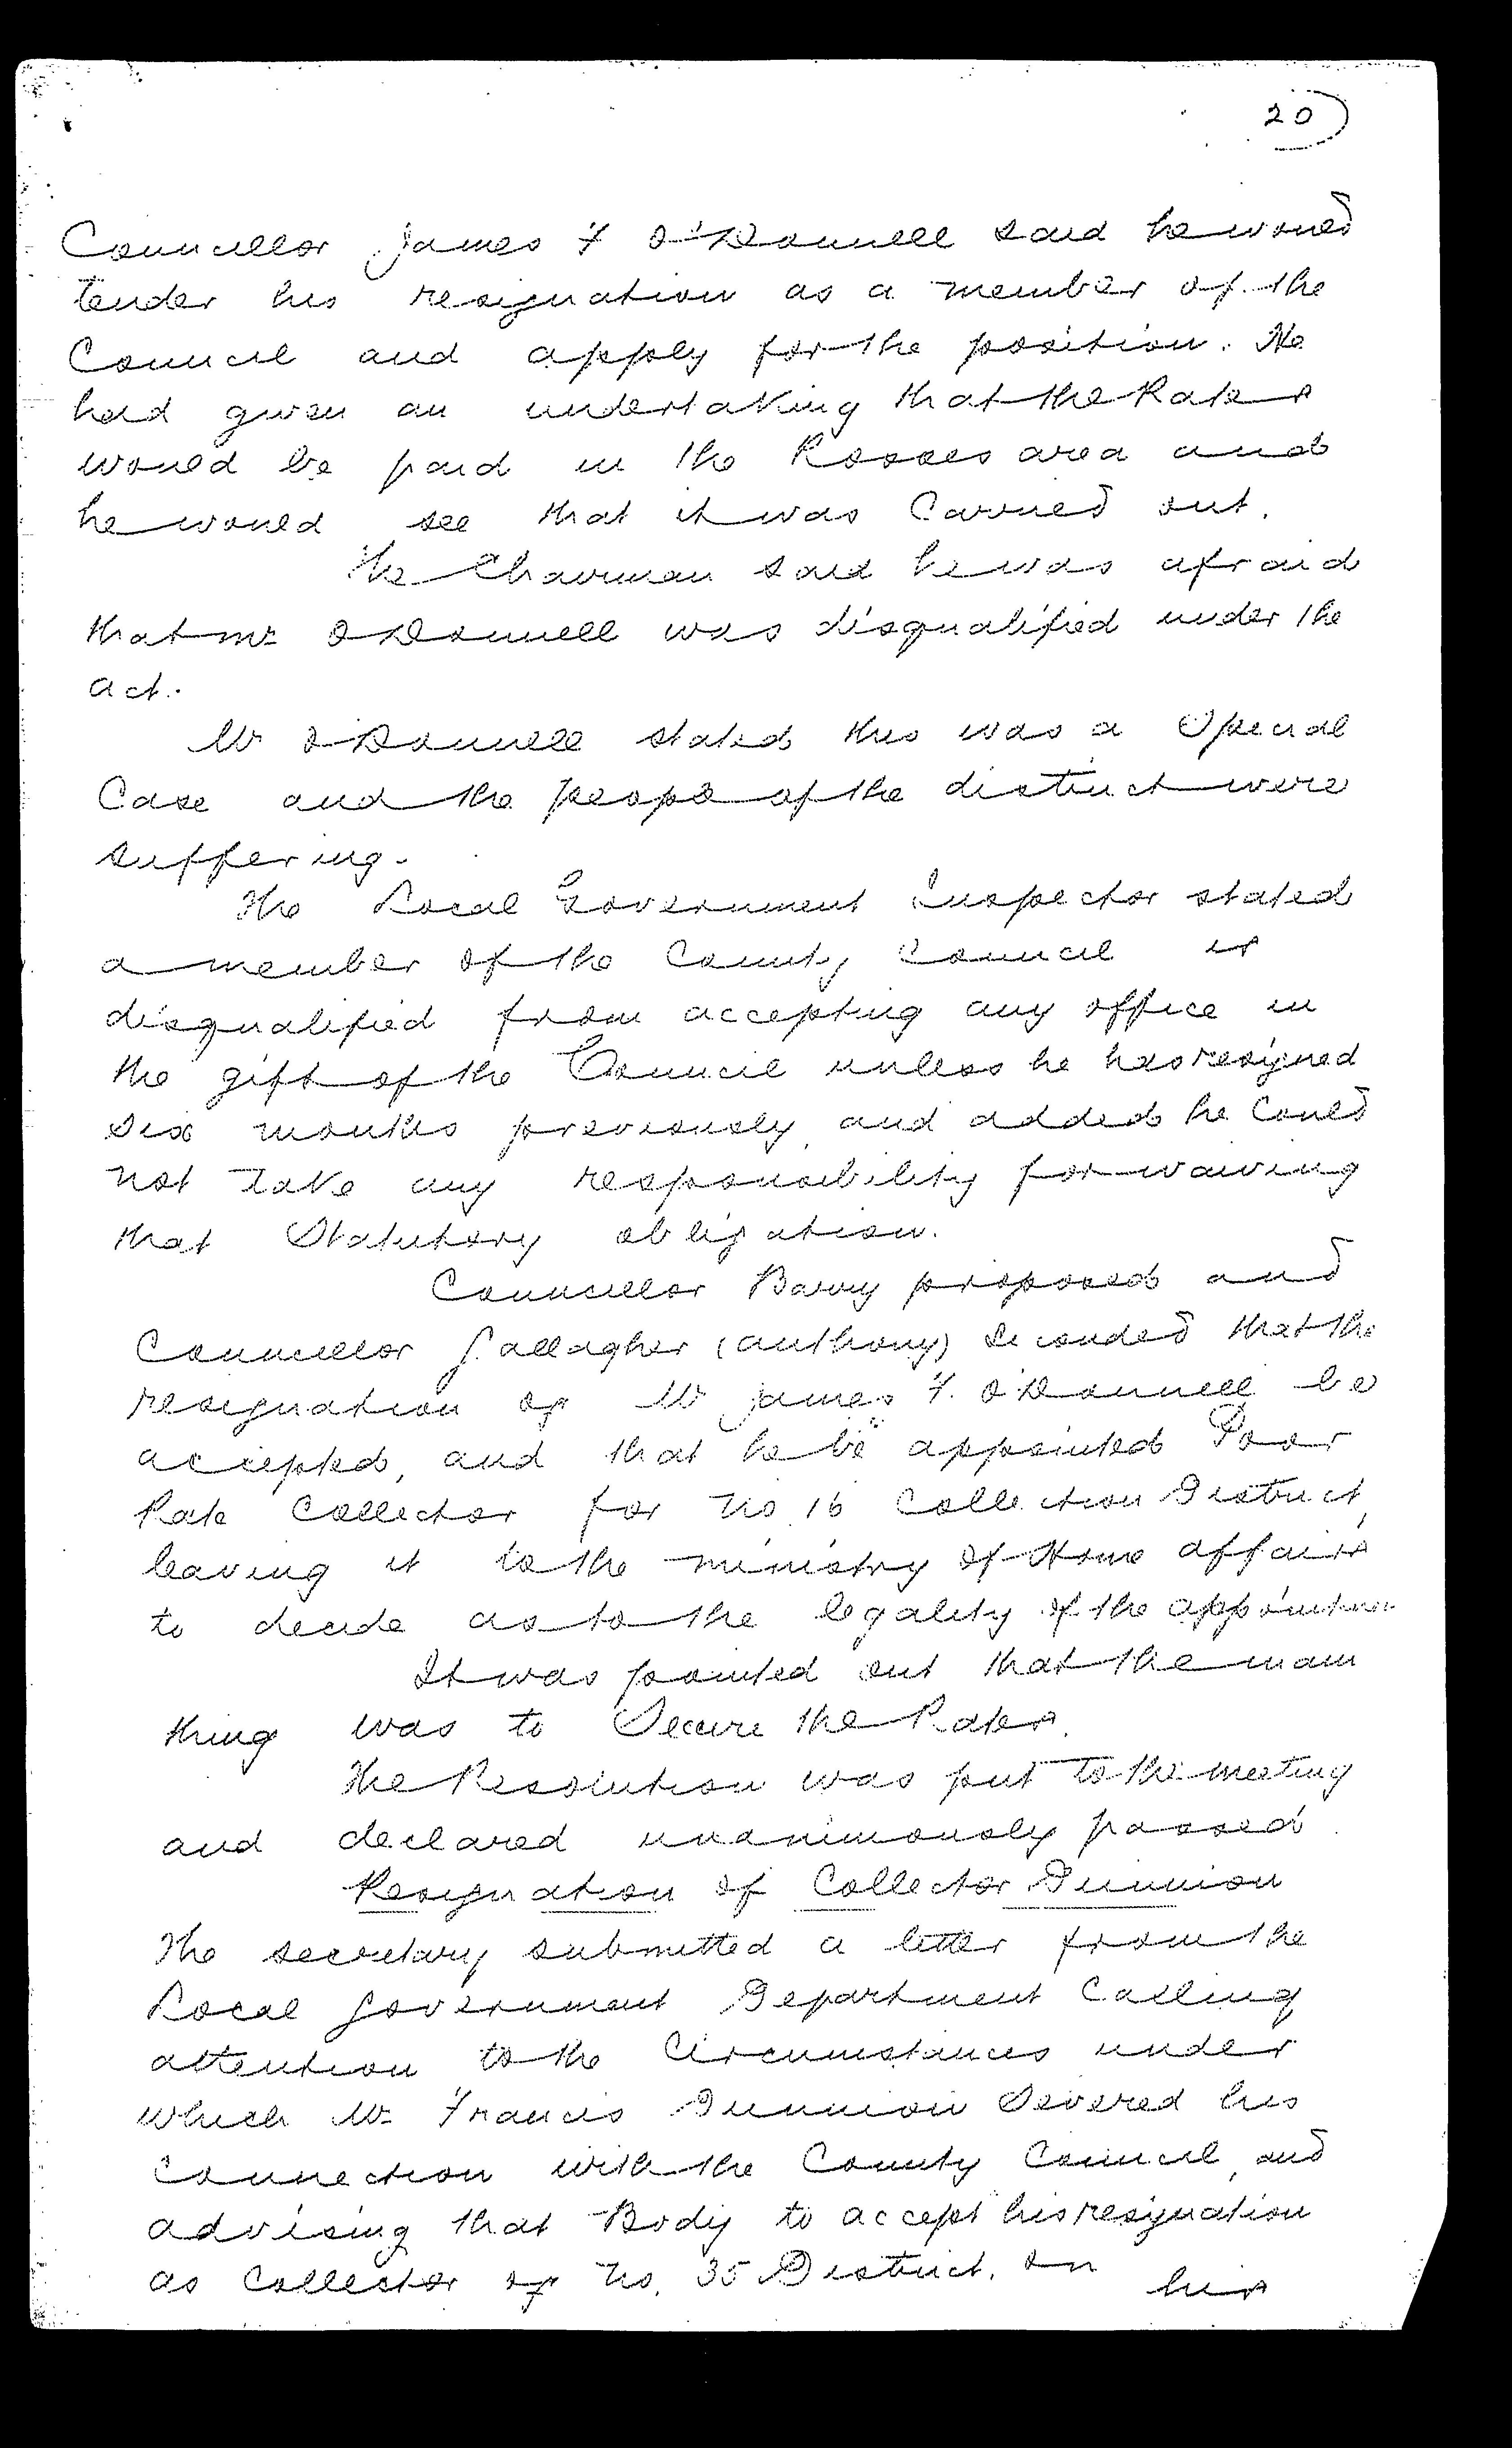 20
Councillor James F O'Donnell said he would
tender his resignation as a member of the
Council and apply for the position. He
had given an undertaking that the Rates
would be paid in the Rosses area and
he would see that it was Carried out.
The Chairman said he was afraid
that Mr O'Donnell was disqualified under the
act.
Mr O'Donnell stated this was a Special
Case and the people of the district were
suffering.
The Local Government Inspector stated
a member of the County Council is
disqualified from accepting any office in
the gift of the Council unless he has resigned
six months previously and added he Could
not take any responsibility for waiving
that Statutory obligation.
Councillor Barry proposed and
Councillor Gallagher (Anthony) seconded that the
resignation of Mr James F. O'Donnell be
accepted, and that he be appointed Poor
Rate Collector for No. 16 Collection District,
leaving it to the Ministry of Home affairs
to decide as to the legality of the appointmen
It was pointed out that the main
thing was to Secure the Rates.
The Resolution was put to the meeting
and declared unanimously passed.
Resignation of Collector Dunnion
The secretary submitted a letter from the
Local Government Department Calling
attention to the Circumstances under
which Mr Francis Dunnion Severed his
Connection with the County Council, and
advising that Body to accept his resignation
as Collector of No. 35 District. On his